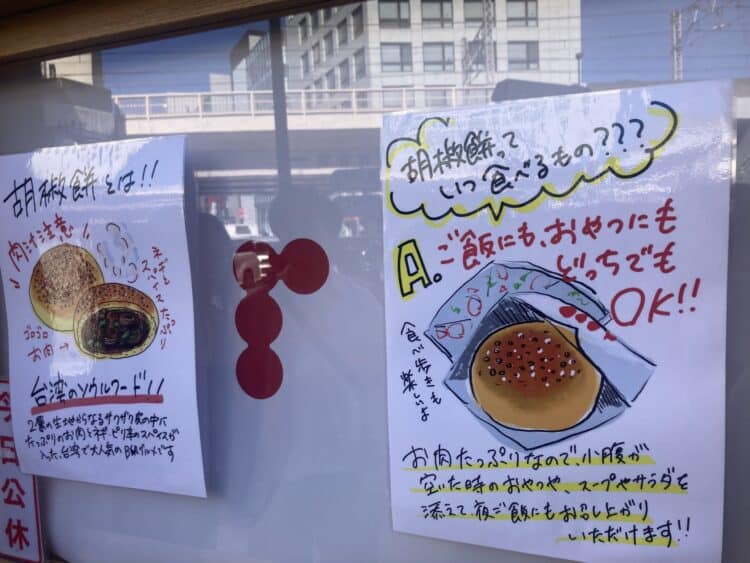 胡椒餅とは!!
肉汁注意!
ネギとスパイスたっぷり
ゴロゴロ
お肉→
台湾のソウルフード!!
2層の生地からなるサクサク皮の中に
たっぷりのお肉とネギ、ピリ辛のスパイスが
入った、台湾で大人気のB級グルメです
今日公休
胡椒餅って
いつ食べるもの???
A。ご飯にも、おやつにも
どっちでも
OK!!
食べ歩きも
楽しいよ
お肉たっぷりなので、小腹が
空いた時のおやつや、スープやサラダを
添えて夜ご飯にもお召し上がり
いただけます!!